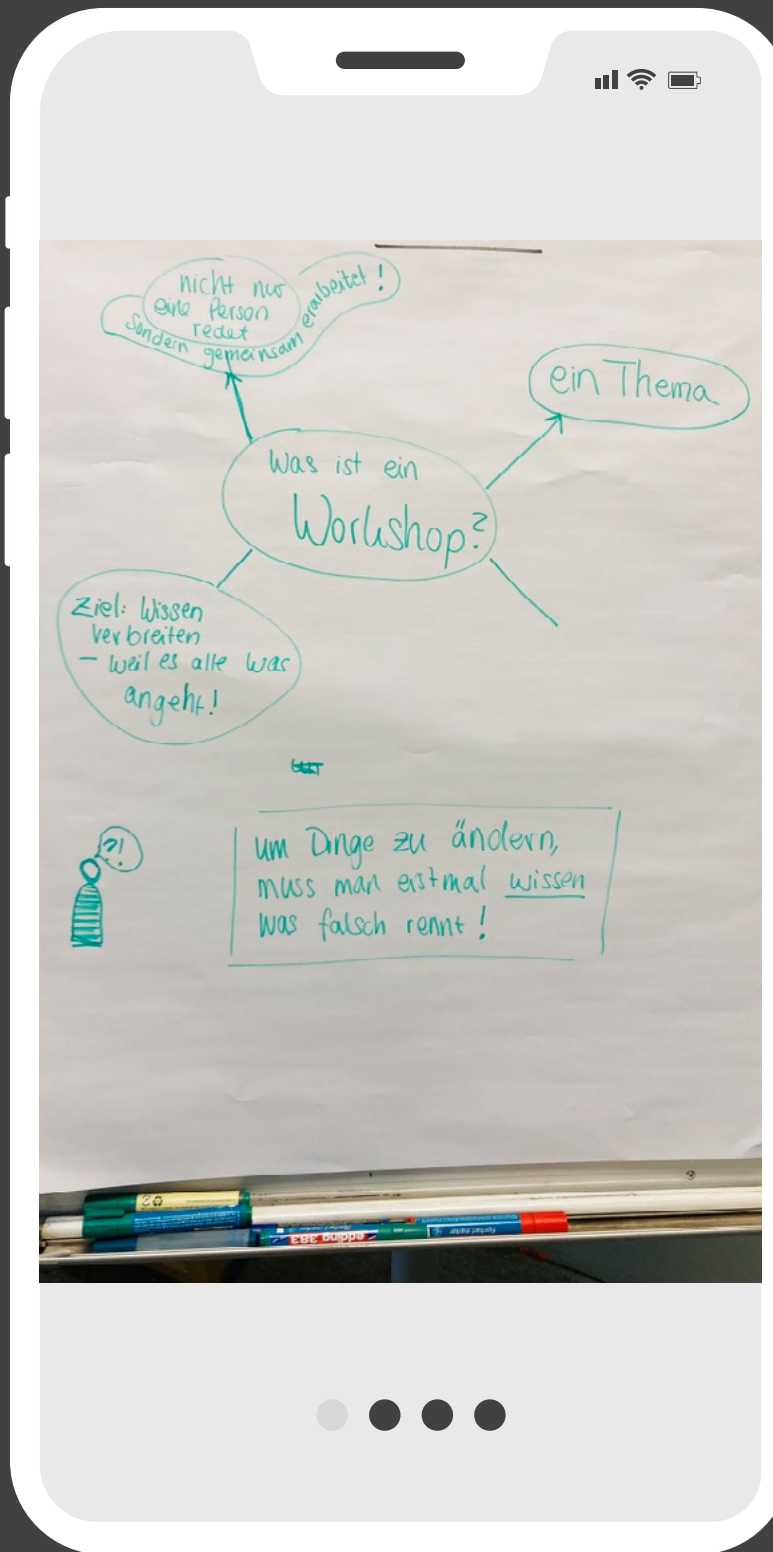 nicht nur
eine Person
redet
sondern gemeinsam erarbeitet!
ein Thema
Was ist ein
Workshop?
Ziel: Wissen
verbreiten
– weil es alle was
angeht!
?!
um Dinge zu ändern,
muss man erstmal wissen
was falsch rennt!
edding 383